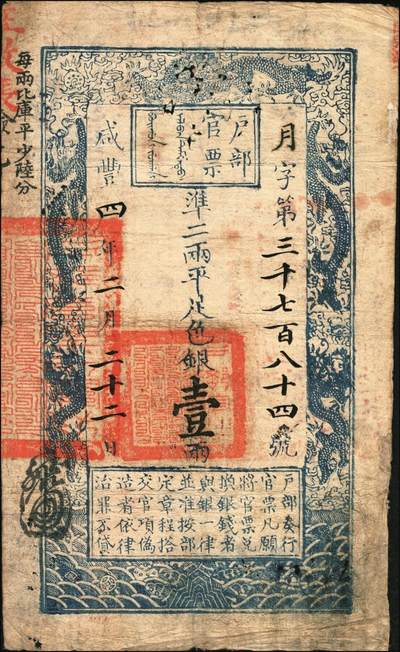 月字第三千七百八十四號
戶部
官票
準二兩平足色銀壹兩
咸豐四年二月二十二日
每兩比庫平少陸分
戶部奏行
官票凡願
將官票兌
換銀錢者
與銀一律
並准按部
定章程搭
交官項偽
造者依律
治罪不貸